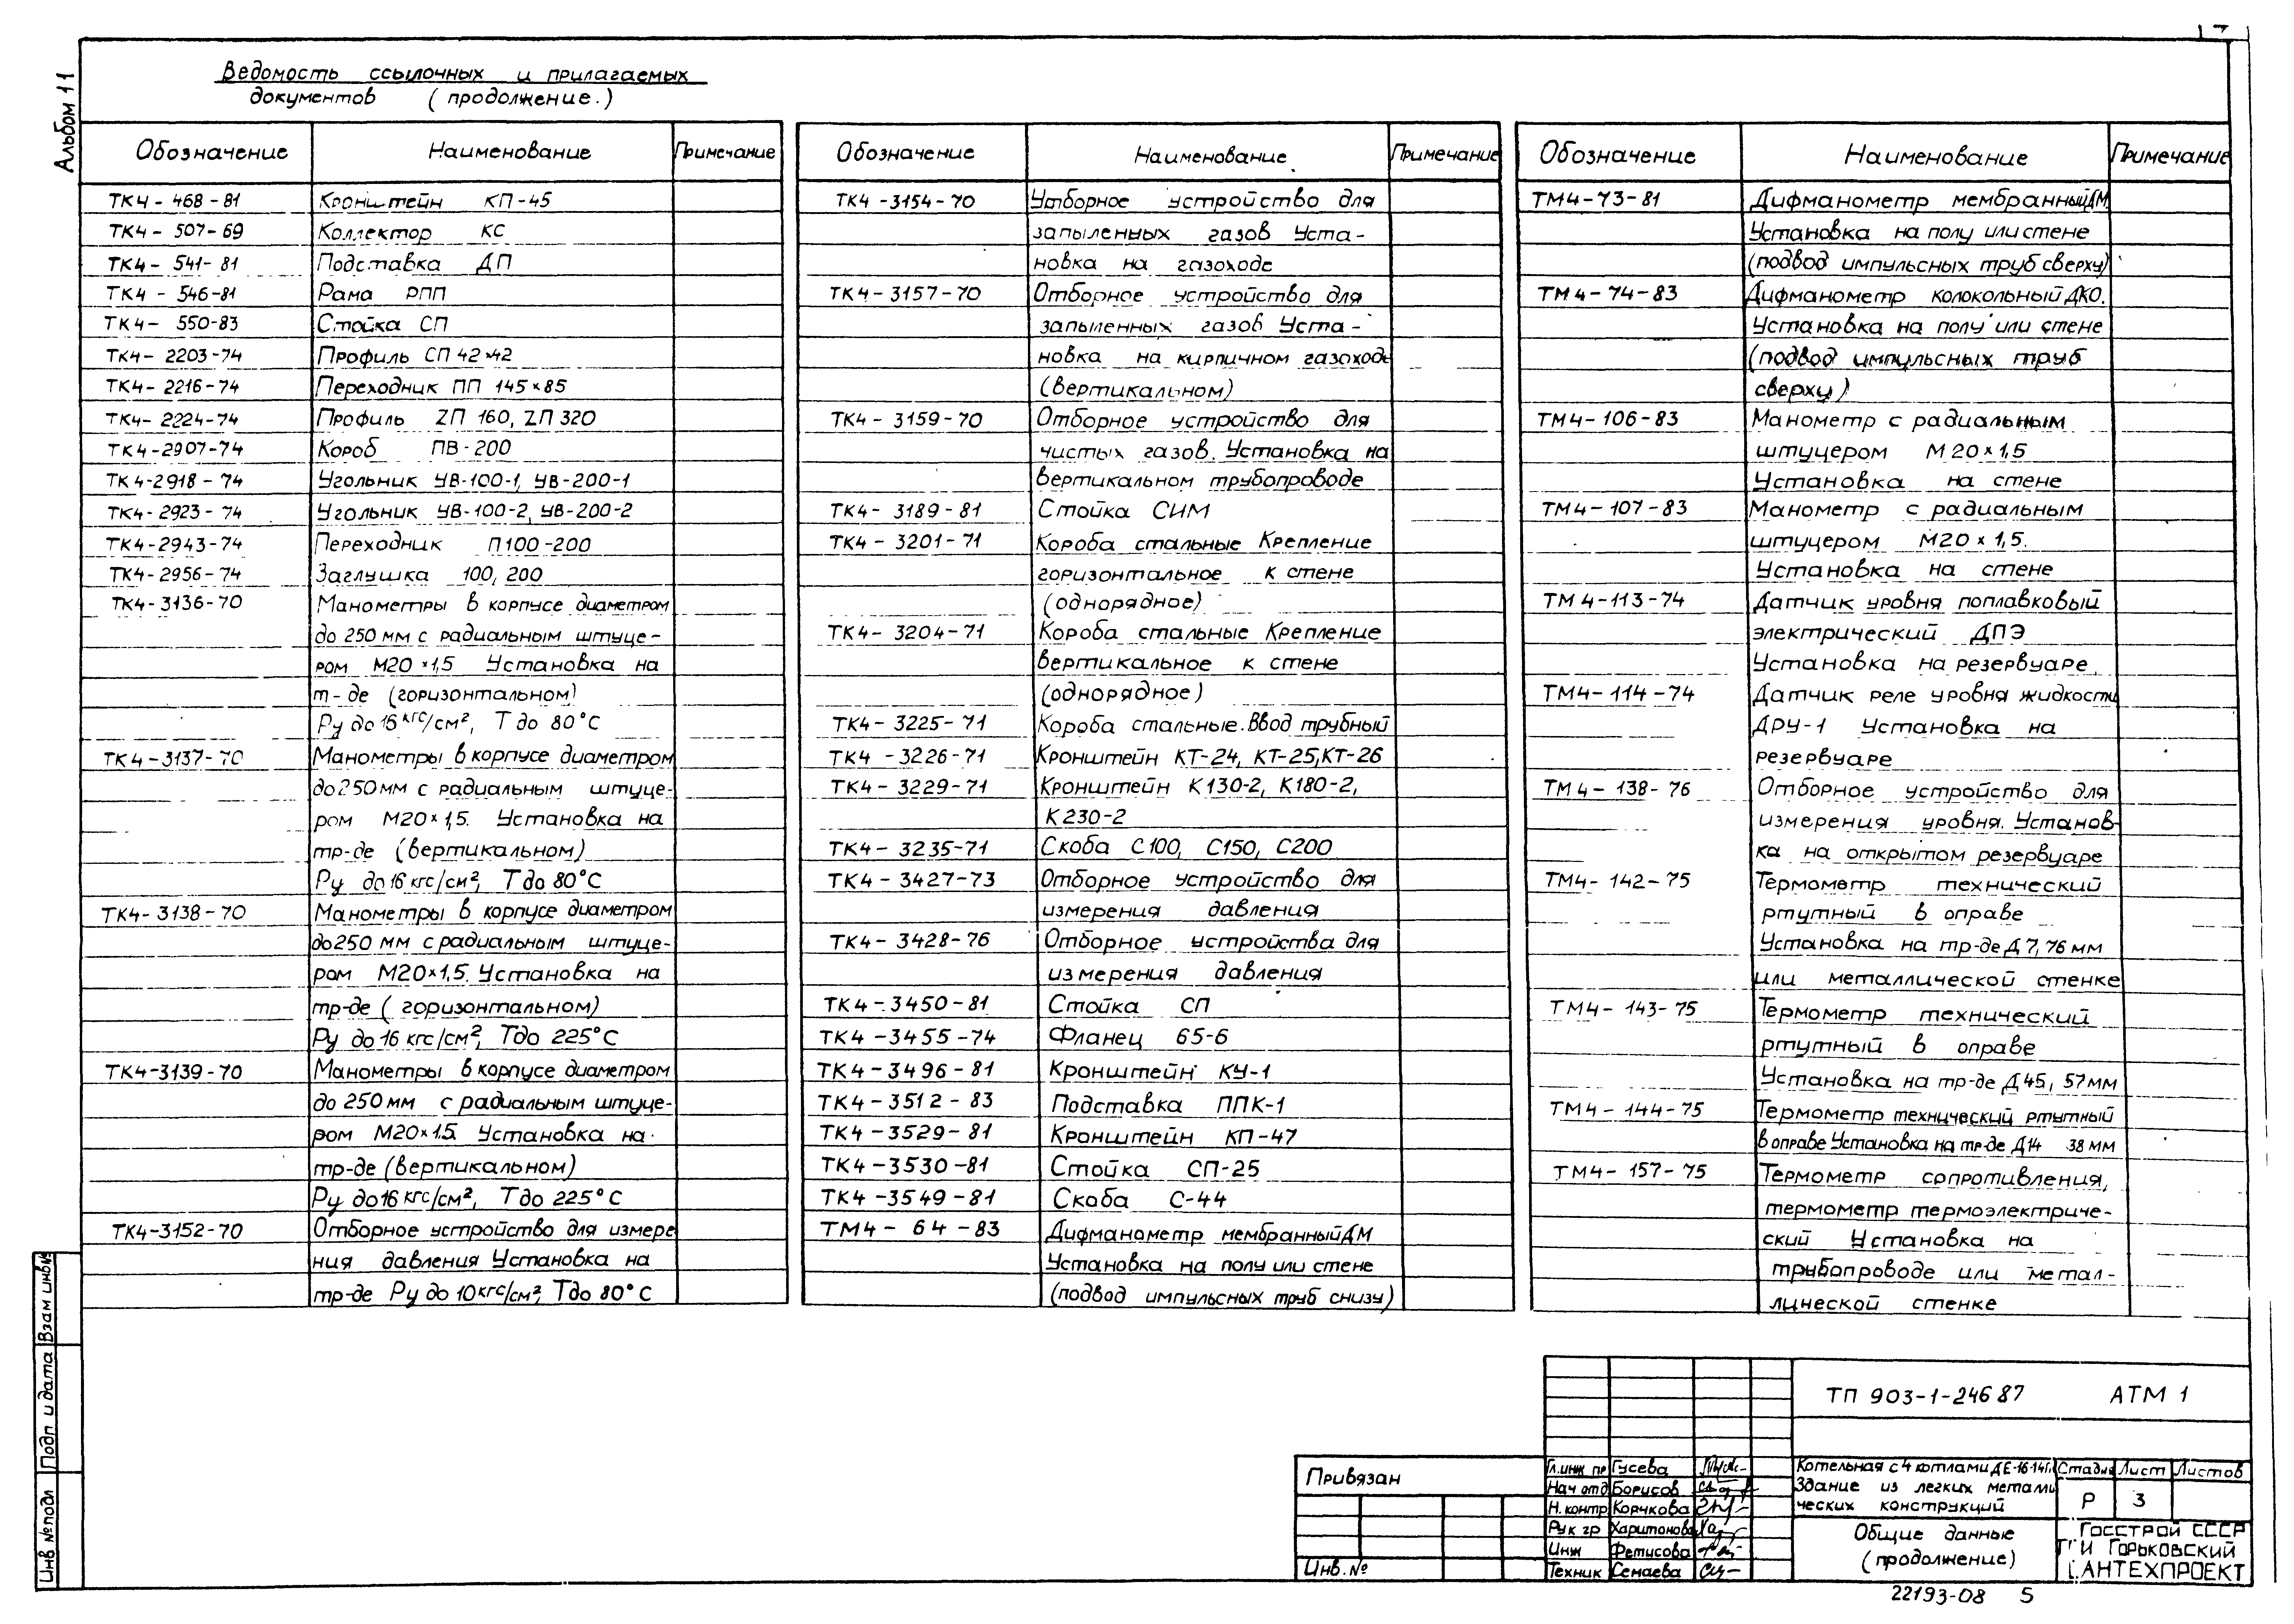 Альбом 11
Ведомость ссылочных и прилагаемых
документов (продолжение.)
Обозначение Наименование Примечание
ТК4-468-81 Кронштейн КП-45
ТК4-507-69 Коллектор КС
ТК4-541-81 Подставка ДП
ТК4-546-81 Рама РПП
ТК4-550-83 Стойка СП
ТК4-2203-74 Профиль СП 42×42
ТК4-2216-74 Переходник ПП 145×85
ТК4-2224-74 Профиль ZП 160, ZП 320
ТК4-2907-74 Короб ПВ-200
ТК4-2918-74 Угольник УВ-100-1, УВ-200-1
ТК4-2923-74 Угольник УВ-100-2, УВ-200-2
ТК4-2943-74 Переходник П100-200
ТК4-2956-74 Заглушка 100, 200
ТК4-3136-70 Манометры в корпусе диаметром
до 250 мм с радиальным штуце-
ром М20×1,5 Установка на
т-де (горизонтальном)
Ру до 16 кгс/см², Т до 80°С
ТК4-3137-70 Манометры в корпусе диаметром
до 250 мм с радиальным штуце-
ром М20×1,5. Установка на
тр-де (вертикальном)
Ру до 16 кгс/см², Т до 80°С
ТК4-3138-70 Манометры в корпусе диаметром
до 250 мм с радиальным штуце-
ром М20×1,5. Установка на
тр-де (горизонтальном)
Ру до 16 кгс/см², Т до 225°С
ТК4-3139-70 Манометры в корпусе диаметром
до 250 мм с радиальным штуце-
ром М20×1.5. Установка на
тр-де (вертикальном)
Ру до 16 кгс/см², Т до 225°С
ТК4-3152-70 Отборное устройство для измере
ния давления Установка на
тр-де Ру до 10 кгс/см², Т до 80°С
Обозначение Наименование Примечание
ТК4-3154-70 Отборное устройство для
запыленных газов Уста-
новка на газоходе
ТК4-3157-70 Отборное устройство для
запыленных газов Уста-
новка на кирпичном газоходе
(вертикальном)
ТК4-3159-70 Отборное устройство для
чистых газов. Установка на
вертикальном трубопроводе
ТК4-3189-81 Стойка СИМ
ТК4-3201-71 Короба стальные Крепление
горизонтальное к стене
(однорядное)
ТК4-3204-71 Короба стальные Крепление
вертикальное к стене
(однорядное)
ТК4-3225-71 Короба стальные. Ввод трубный
ТК4-3226-71 Кронштейн КТ-24, КТ-25, КТ-26
ТК4-3229-71 Кронштейн К130-2, К180-2,
К230-2
ТК4-3235-71 Скоба С100, С150, С200
ТК4-3427-73 Отборное устройство для
измерения давления
ТК4-3428-76 Отборное устройства для
измерения давления
ТК4-3450-81 Стойка СП
ТК4-3455-74 Фланец 65-6
ТК4-3496-81 Кронштейн КУ-1
ТК4-3512-83 Подставка ППК-1
ТК4-3529-81 Кронштейн КП-47
ТК4-3530-81 Стойка СП-25
ТК4-3549-81 Скоба С-44
ТМ4-64-83 Дифманометр мембранный ДМ
Установка на полу или стене
(подвод импульсных труб снизу)
Обозначение Наименование Примечание
ТМ4-73-81 Дифманометр мембранный ДМ
Установка на полу или стене
(подвод импульсных труб сверху)
ТМ4-74-83 Дифманометр колокольный ДКО.
Установка на полу или стене
(подвод импульсных труб
сверху)
ТМ4-106-83 Манометр с радиальным
штуцером М20×1,5
Установка на стене
ТМ4-107-83 Манометр с радиальным
штуцером М20×1,5.
Установка на стене
ТМ4-113-74 Датчик уровня поплавковый
электрический ДПЭ
Установка на резервуаре
ТМ4-114-74 Датчик реле уровня жидкости
ДРУ-1 Установка на
резервуаре
ТМ4-138-76 Отборное устройство для
измерения уровня. Установ-
ка на открытом резервуаре
ТМ4-142-75 Термометр технический
ртутный в оправе
Установка на тр-де Д 7, 76 мм
или металлической стенке
ТМ4-143-75 Термометр технический
ртутный в оправе
Установка на тр-де Д 45, 57 мм
ТМ4-144-75 Термометр технический ртутный
в оправе Установка на тр-де Д14 38 мм
ТМ4-157-75 Термометр сопротивления,
термометр термоэлектриче-
ский Установка на
трубопроводе или метал-
лической стенке
Взам инв №
Подп и дата
Инв № подл
Привязан
Инв. №
ТП 903-1-246 87 АТМ 1
Гл. инж пр Гусева
Нач отд Борисов
Н. контр Корчкова
Рук гр Харитонова
Инж Фетисова
Техник Семаева
Котельная с 4 котлами ДЕ-16-14Г
Здание из легких метали
ческих конструкций
Стадия Лист Листов
Р 3
Общие данные
(продолжение)
Госстрой СССР
И Горьковский
САНТЕХПРОЕКТ
22193-08 5